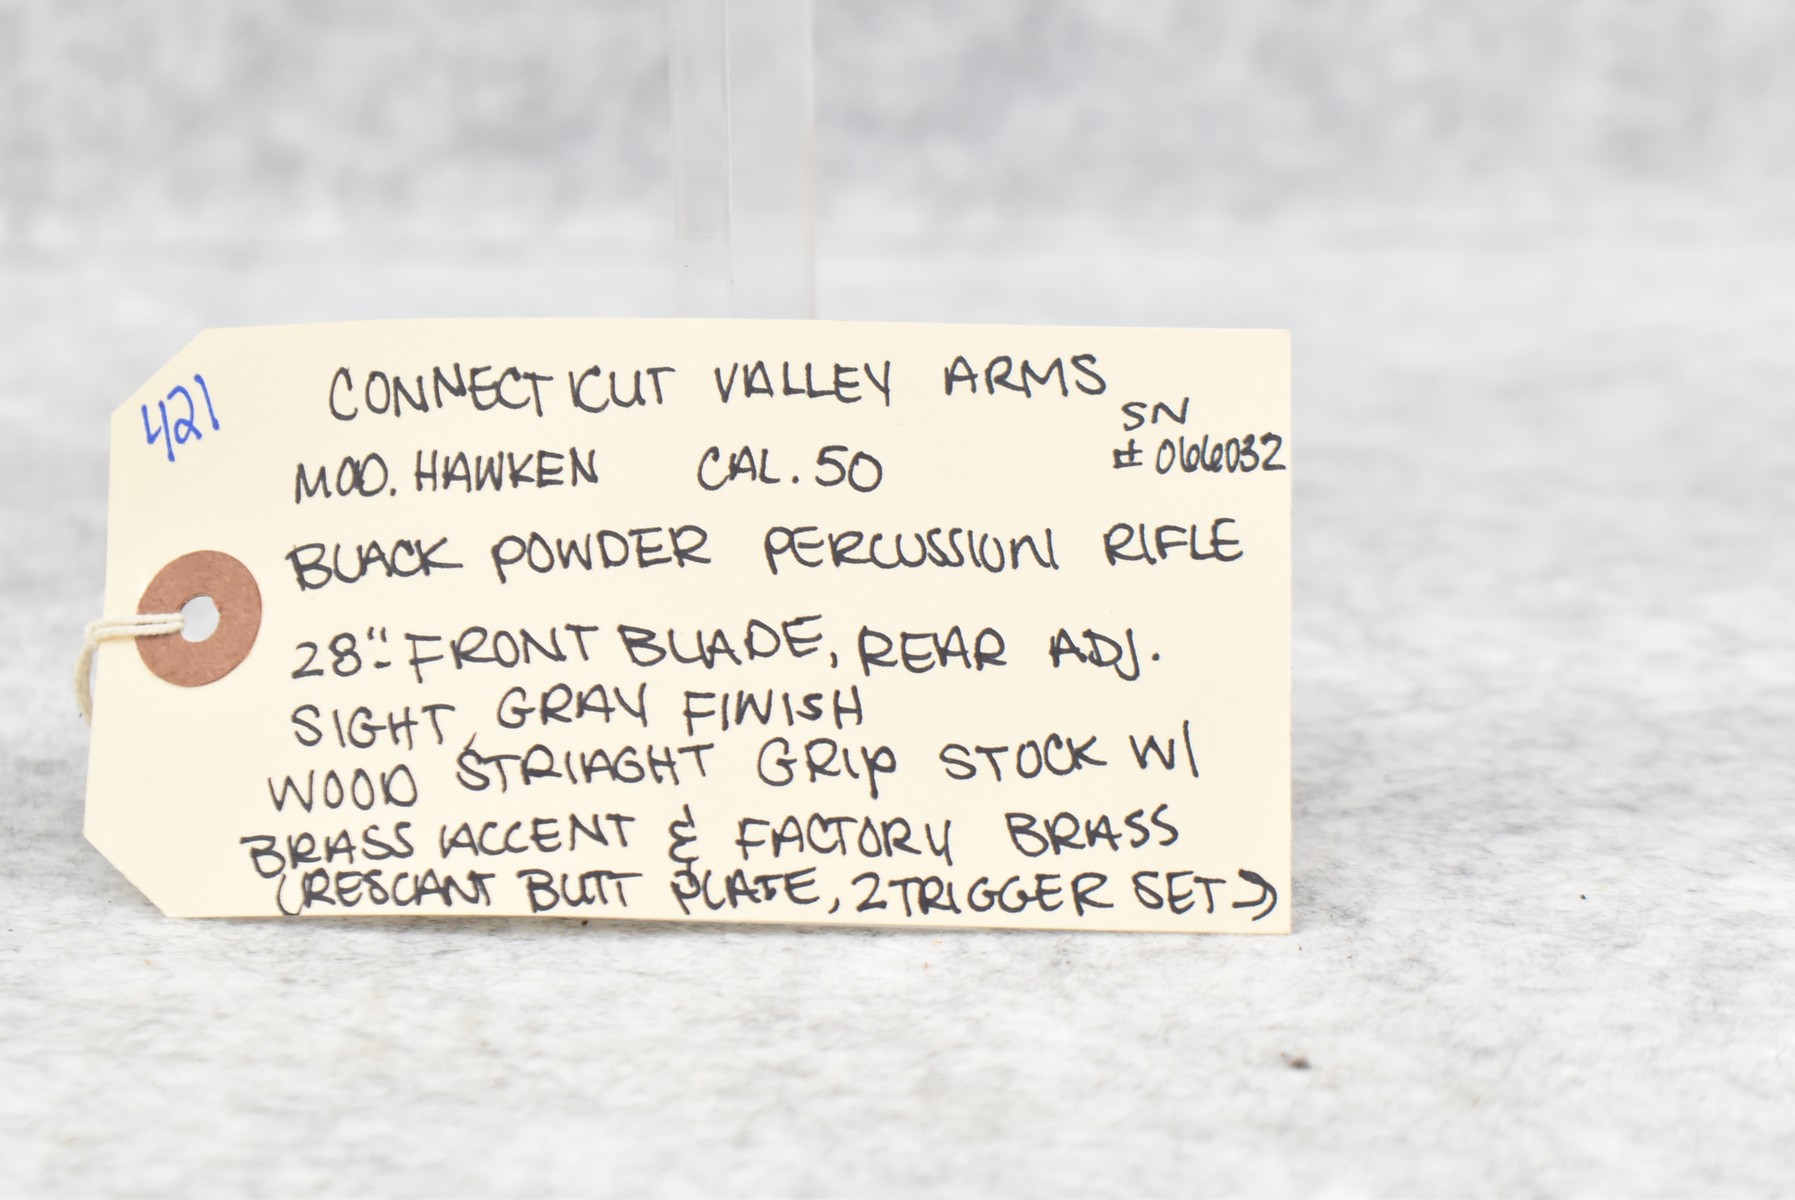 421
CONNECTICUT VALLEY ARMS
SN
# 066032
MOD. HAWKEN CAL. 50
BLACK POWDER PERCUSSION RIFLE
28"- FRONT BLADE, REAR ADJ.
SIGHT, GRAY FINISH
WOOD STRIAGHT GRIP STOCK W/
BRASS ACCENT & FACTORY BRASS
CRESCANT BUTT PLATE, 2 TRIGGER SET →